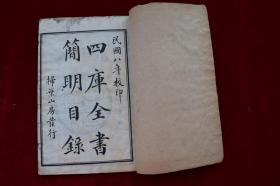 民國八年校印
四庫全書
簡明目錄
掃葉山房發行